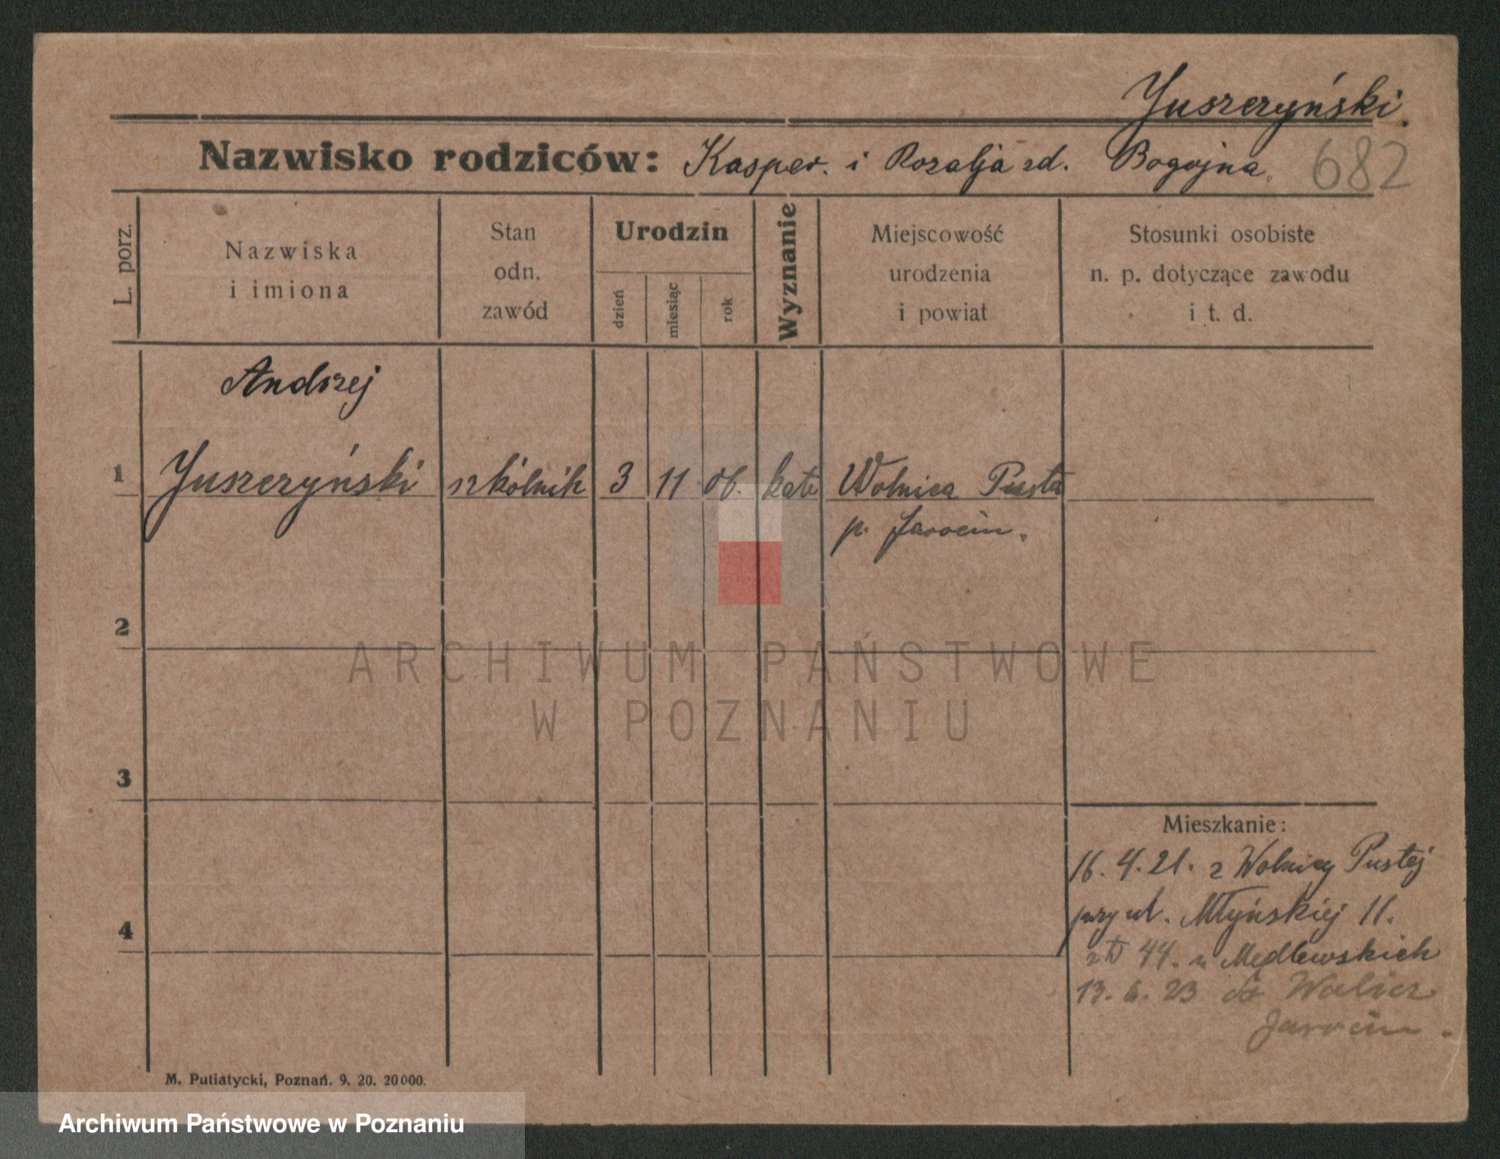 Juszczyński.
Nazwisko rodziców: Kasper. i Rozalja zd. Bogojna. 682
L. porz.
Nazwiska
i imiona
Stan
odn.
zawód
Urodzin
dzień
miesiąc
rok
Wyznanie
Miejscowość
urodzenia
i powiat
Stosunki osobiste
n. p. dotyczące zawodu
i t. d.
Andrzej
1 Juszczyński szkólnik 3 11 06. kat. Wolnica Pusta
p. Jarocin.
2
ARCHIWUM PAŃSTWOWE
W POZNANIU
3
Mieszkanie:
16. 4. 21. z Wolnicy Pustej
przy ul. Młyńskiej 11.
44. u Mędlewskich
13. 6. 23 do
Jarocin.
4
M. Putiatycki, Poznań. 9. 20. 20000.
Archiwum Państwowe w Poznaniu